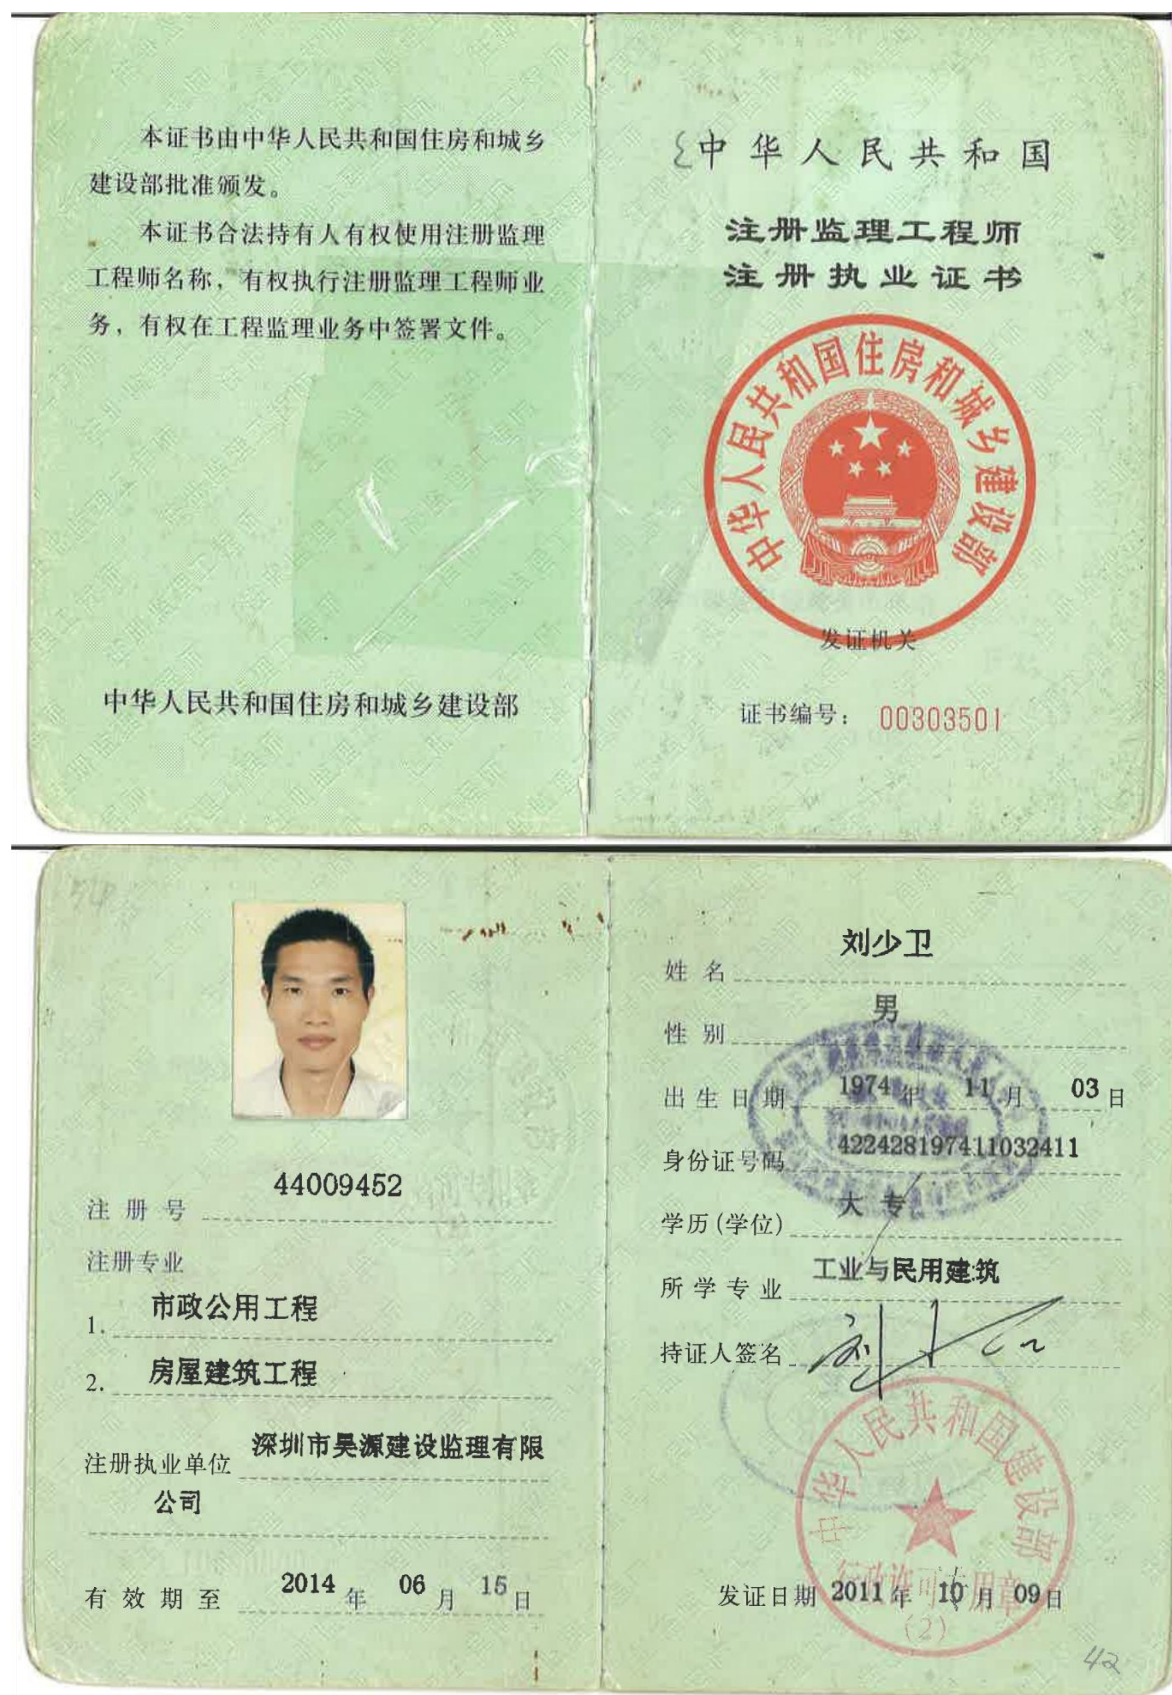 本证书由中华人民共和国住房和城乡
建设部批准颁发。
本证书合法持有人有权使用注册监理
工程师名称，有权执行注册监理工程师业
务，有权在工程监理业务中签署文件。
中华人民共和国住房和城乡建设部
中华人民共和国
注册监理工程师
注册执业证书
中华人民共和国住房和城乡建设部
发证机关
证书编号： 00303501
注册号 44009452
注册专业
1. 市政公用工程
2. 房屋建筑工程
注册执业单位 深圳市昊源建设监理有限
公司
有效期至 2014 年 06 月 15 日
姓名 刘少卫
性别 男
出生日期 1974 年 11 月 03 日
身份证号码 422428197411032411
学历(学位) 大专
所学专业 工业与民用建筑
持证人签名 刘少卫
中华人民共和国建设部
行政许可专用章
(2)
发证日期 2011 年 10 月 09 日
42